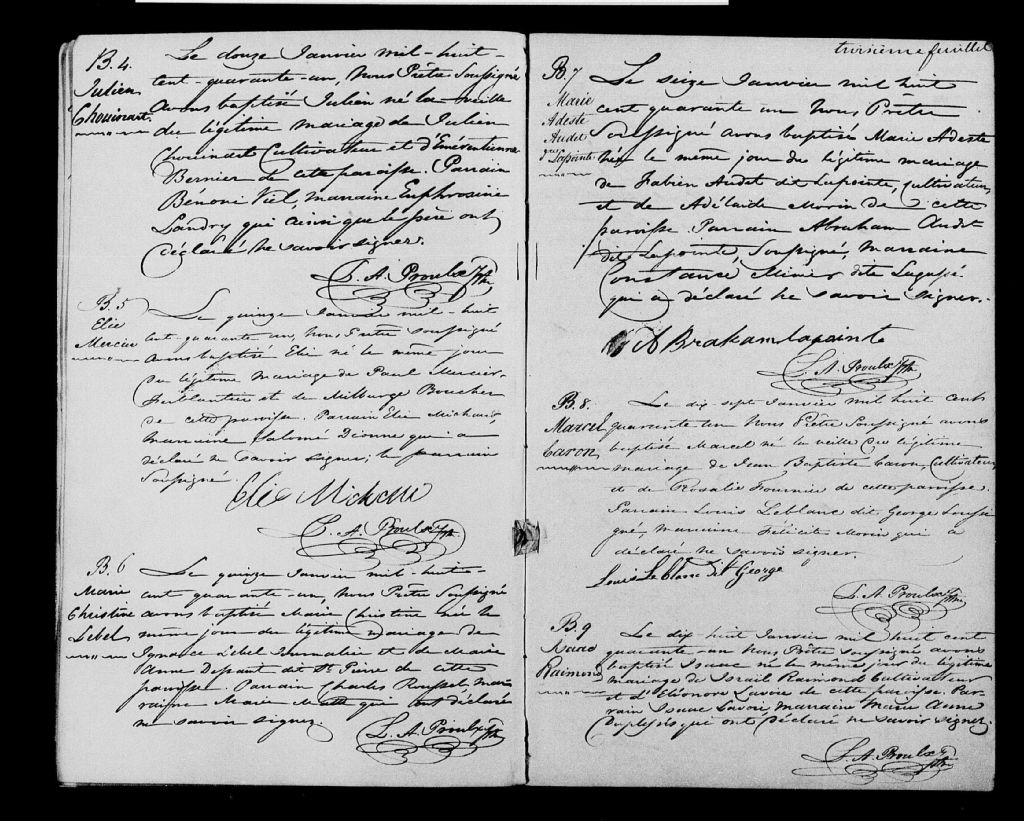 B. 4.
Julien
Chouinart.
Le douze Janvier mil-huit-
cent-quarante-un, Nous Prêtre Soussigné
avons baptisé Julien né la veille
du légitime mariage de Julien
Chouinart Cultivateur et d'Emérentienne
Bernier de cette paroisse. Parrain
Bénoni Viel, maraine Euphrosine
Landry qui ainsi que le père ont
déclaré ne savoir signer.
L. A. Proulx Ptre
B. 5
Elie
Mercier
Le quinze Janvier mil-huit
cent-quarante-un, Nous Prêtre soussigné
avons baptisé Elie né le même jour
du légitime mariage de Paul Mercier
Ferblantier et de Milburge Boucher
de cette paroisse. Parrain Elie Michaud,
marraine Salomé Dionne qui a
déclaré ne savoir signer; le parrain
Soussigné.
Elie Michaud
L. A. Proulx Ptre
B. 6
Marie
Christine
Lebel
Le quinze Janvier mil-huit-
cent quarante-un Nous Prêtre Soussigné
avons baptisé Marie Christine née le
même jour du légitime mariage de
Ignace Lebel Journalier et de Marie
Anne Dessant dit St Pierre de cette
paroisse. Parrain Charles Roussel mar-
raine Marie qui ont déclaré
ne savoir signer.
L. A. Proulx Ptre
troisième feuillet
B. 7
Marie
Adeste
Audet
Lapointe
Le seize Janvier mil huit
cent quarante un Nous Prêtre
Soussigné avons baptisé Marie Adeste
née le même jour du légitime mariage
de Fabien Audet dit Lapointe, cultivateur,
et de Adélaide Morin de cette
paroisse. Parrain Abraham Audet
dit Lapointe, Soussigné, marraine
Constance Minier dite Lagassé
qui a déclaré ne savoir signer.
ABrakam lapointe
L. A. Proulx Ptre
B. 8.
Marcel
Caron
Le dix sept Janvier mil huit cent
quarante un Nous Prêtre Soussigné avons
baptisé Marcel né la veille du légitime
mariage de Jean Baptiste Caron, Cultivateur
et de Rosalie Fournier de cette paroisse.
Parrain Louis Leblanc dit George Soussi
gné, marraine Félicité Morin qui a
déclaré ne savoir signer.
Louis Leblanc dit George
L. A. Proulx Ptre
B. 9
Isaac
Raimond
Le dix huit Janvier mil huit cent
quarante un Nous Prêtre soussigné avons
baptisé Isaac né le même jour du légitime
mariage de Israïl Raimond Cultivateur
et d'Eléonore Lavoie de cette paroisse. Par-
rain Isaac Lavoie, marraine Marie Anne
qui ont déclaré ne savoir signer.
L. A. Proulx Ptre